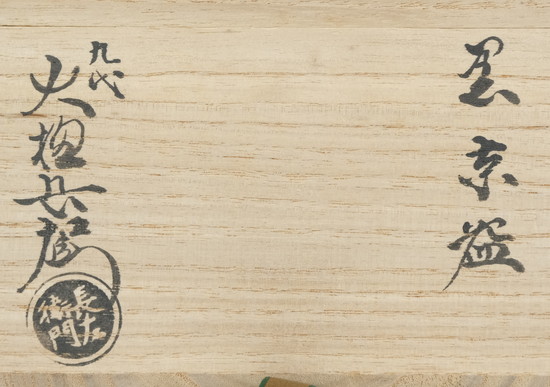 黒茶盌
九代
大樋長左衛門
長左衛門